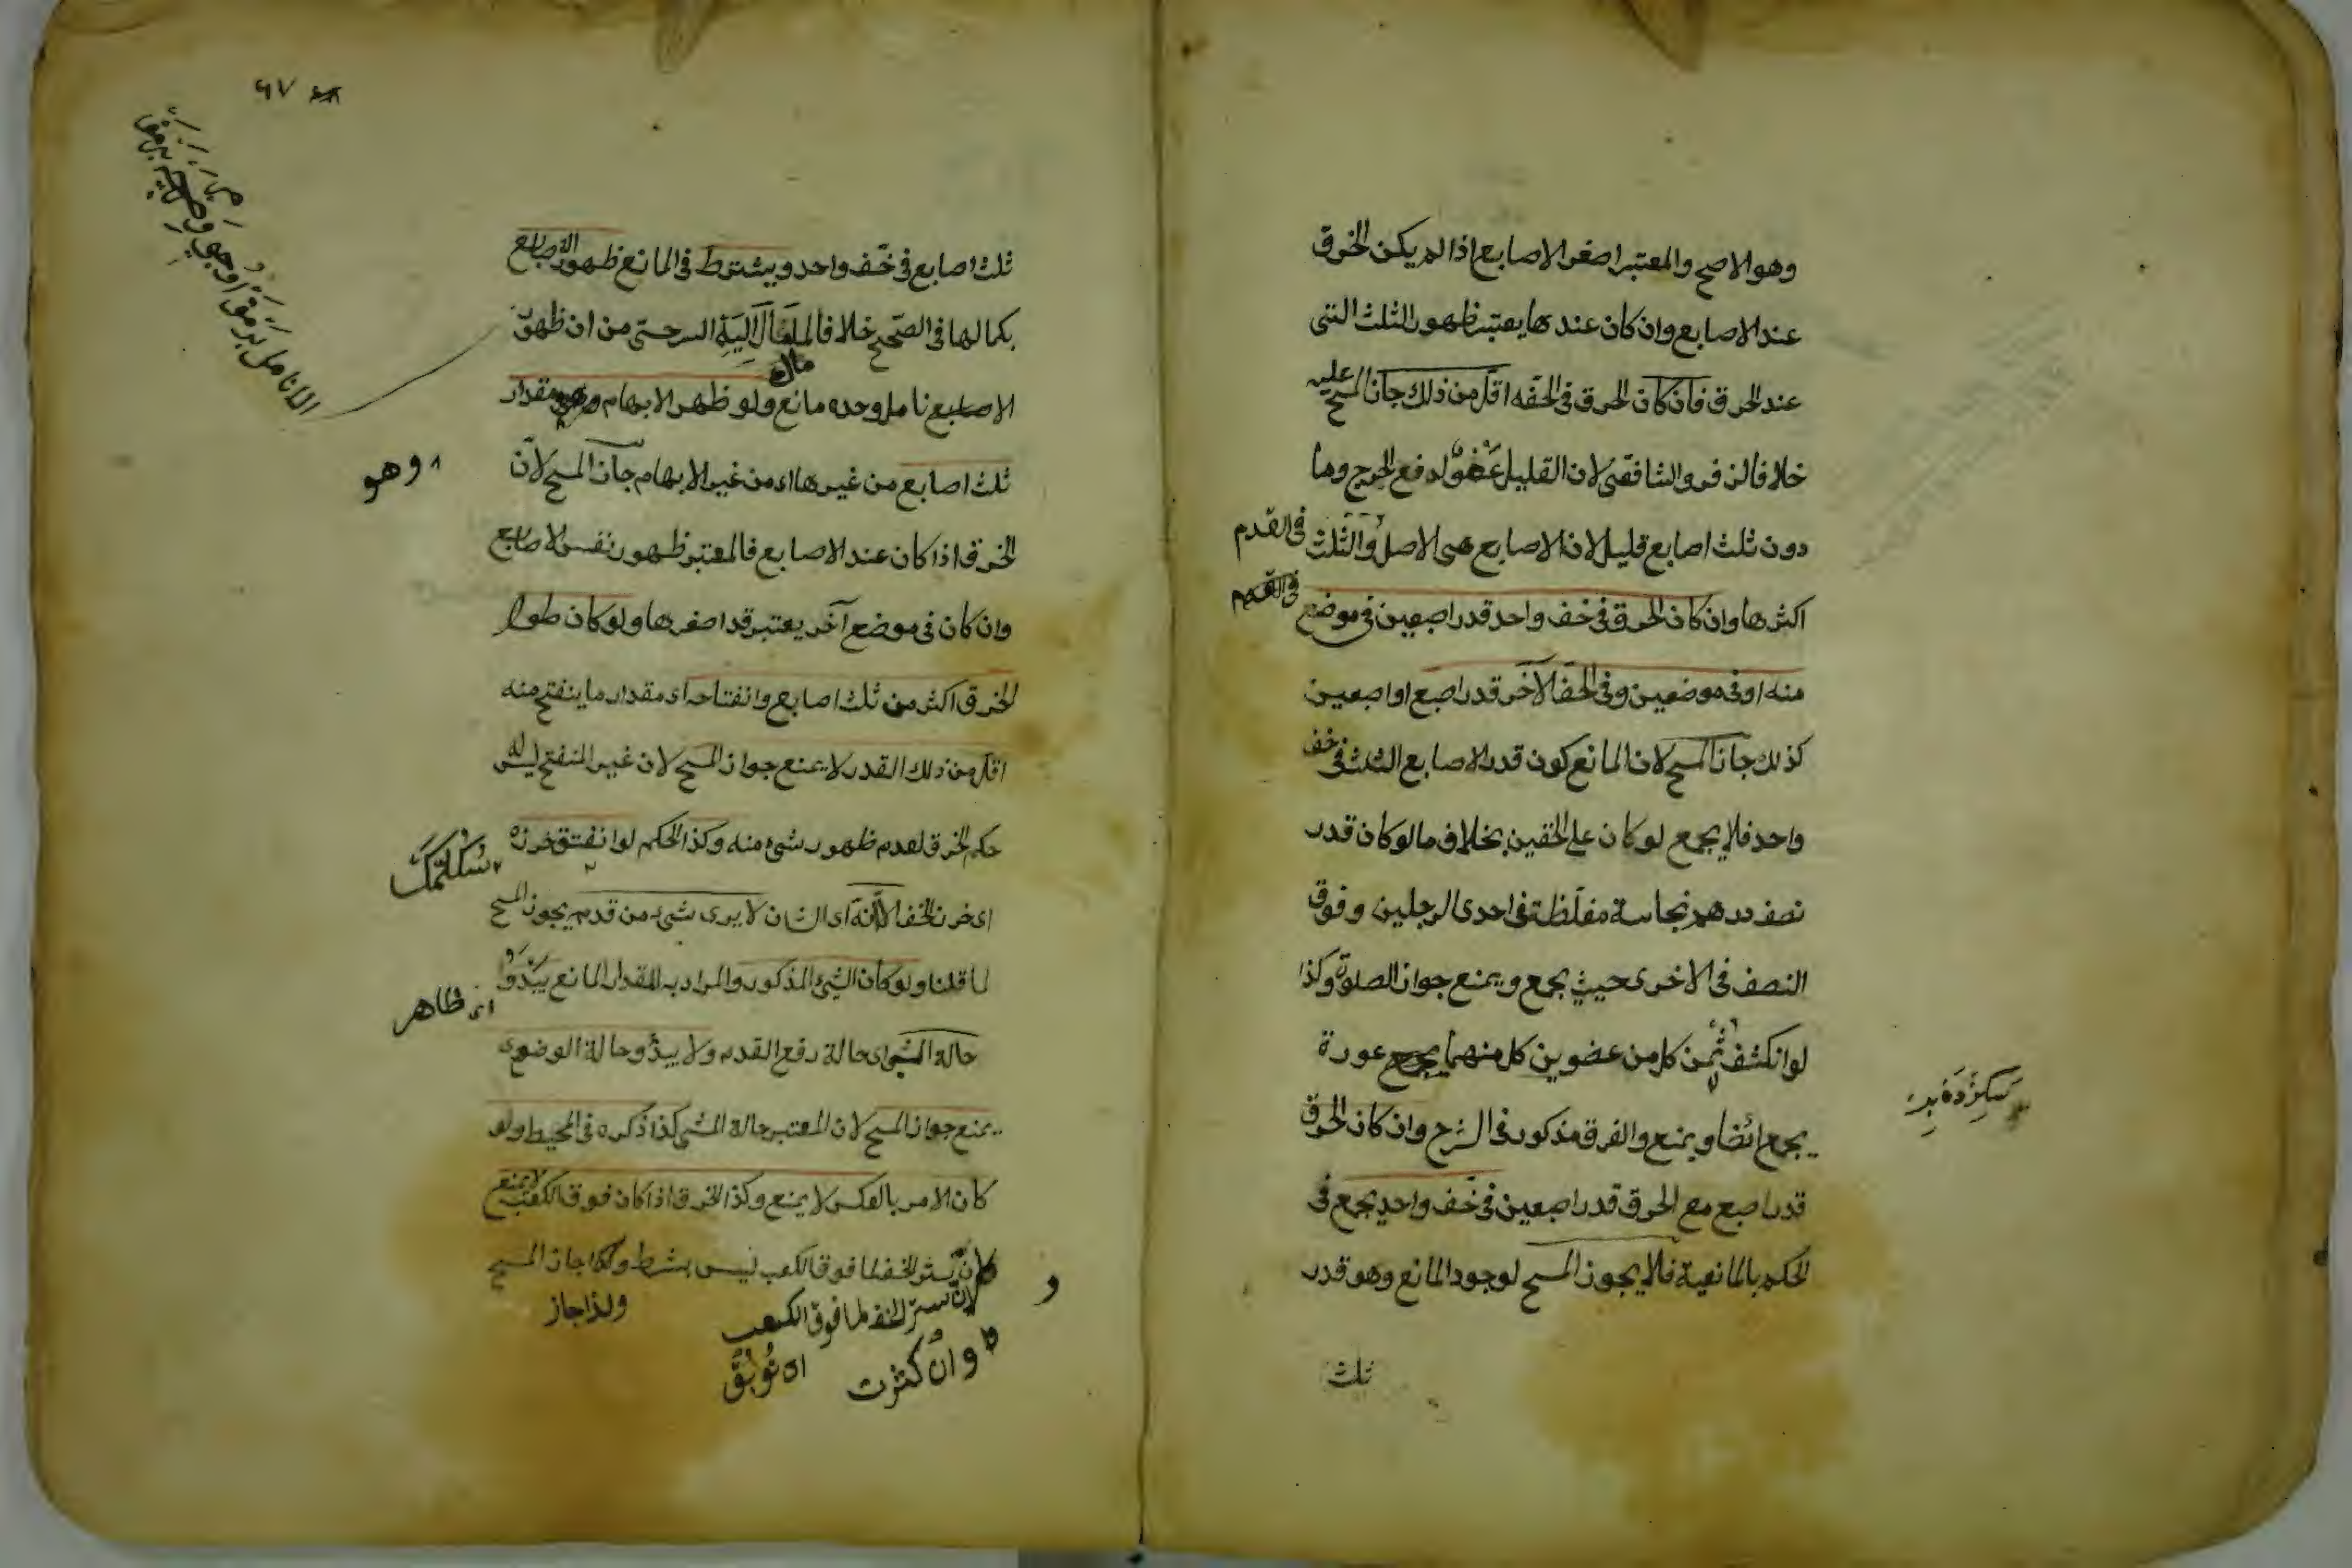 وهو الاصح والمعتبر اصغر الاصابع اذا لم يكن الخرق
عند الاصابع وان كان عندها يعتبر ظهور الثلث التى
عند الخرق فان كان الخرق فى الخفه اقل من ذلك جاز المسح عليه
خلافا لزفر والشافعى لان القليل عفو لدفع الحرج وما
دون ثلث اصابع قليل لان الاصابع هى الاصل والثلث فى القدم
اكثرها وان كان الخرق فى خف واحد قدر اصبعين فى موضع
منه او فى موضعين وفى الخف الآخر قدر اصبع او اصبعين
كذلك جاز المسح لان المانع كون قدر الاصابع الثلث فى خف
واحد فلا يجمع لو كان على الخفين بخلاف ما لو كان قدر
نصف درهم نجاسة مغلظة فى احدى الرجلين وفوق
النصف فى الاخرى حيث يجمع ويمنع جواز الصلوة وكذا
لو انكشف ثمن كل من عضوين كل منهما عورة
يجمع ائضا ويمنع والفرق مذكور فى الشرح وان كان الخرق
قدر اصبع مع الخرق قدر اصبعين فى خف واحد يجمع فى
الحكم بالمانعية فلا يجوز المسح لوجود المانع وهو قدر
ثلث
٦٧
ثلث اصابع فى خف واحد ويشترط فى المانع ظهور الاصابع
بكمالها فى الصحيح خلافا لما مال اليه السرحسى من ان ظهور
الانامل وحده مانع ولو ظهر الابهام وهو مقدار
ثلث اصابع من غيرها اى من غير الابهام جاز المسح لان
وهو
الخرق اذا كان عند الاصابع فالمعتبر ظهور نفس الاصابع
وان كان فى موضع آخر يعتبر قدر اصغرها ولو كان طول
الخرق اكثر من ثلث اصابع وانفتاحه اى مقدار ما ينفتح منه
اقل من ذلك القدر لا يمنع جواز المسح لان غير المنفتح ليس له
حكم الخرق لعدم ظهور شئ منه وكذا الحكم لو انفتق خرزه
اى خرز الخف الا انه اى الشان لا يرى شئ من قدم يجوز المسح
لما قلنا ولو كان الشئ المذكور والمراد به المقدار المانع يبدوا
اى ظاهر
حالة المشى اى حالة رفع القدم ولا يبدو حالة الوضوء
يمنع جواز المسح لان المعتبر حالة المشى كذا ذكره فى المحيط ولو
كان الامر بالعكس لا يمنع وكذا الخرق اذا كان فوق الكعب لا يمنع
لان ستر الخف لما فوق الكعب ليس بشرط ولذا جاز المسح
لان ستر الخف لما فوق الكعب
ولذا جاز
وان كثرت